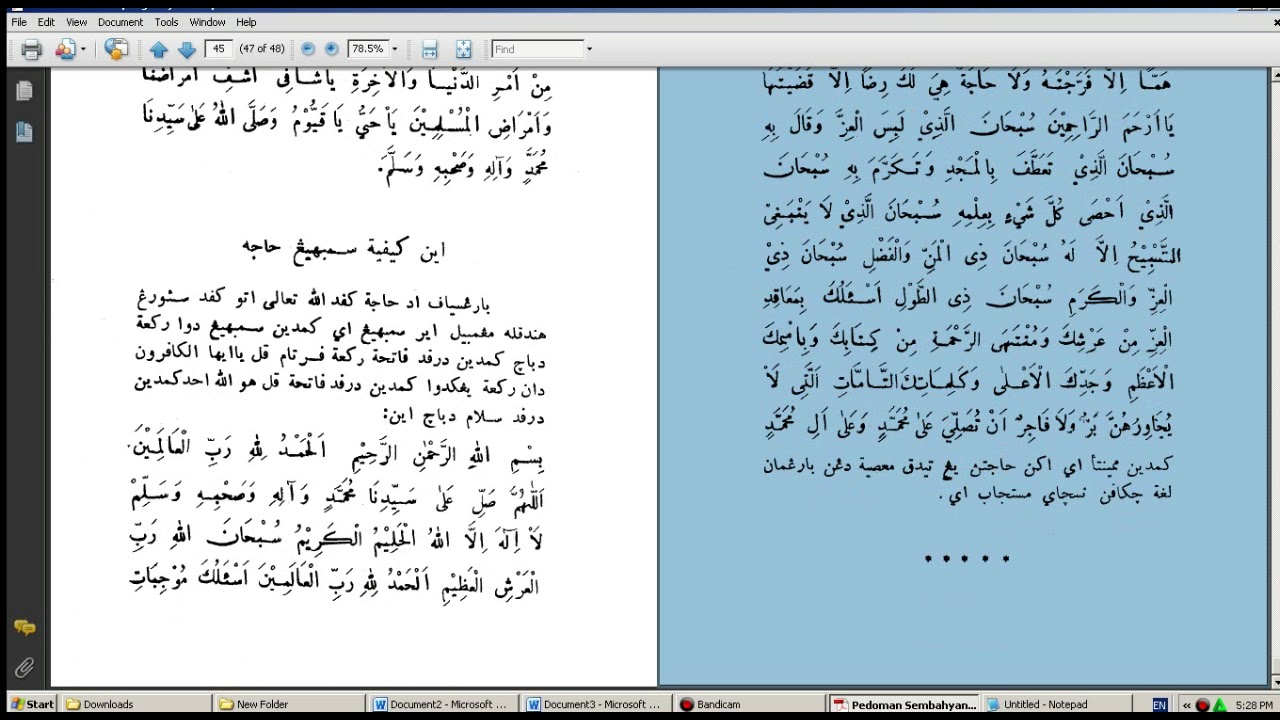 File Edit View Document Tools Window Help
45 (47 of 48) 78.5% Find
مِنْ اَمْرِ الدُّنْيَا وَالْاٰخِرَةِ يَاشَافِى اشْفِ اَمْرَاضَنَا
وَاَمْرَاضِ الْمُسْلِمِيْنَ يَاحَيُّ يَا قَيُّوْمُ وَصَلَّى اللهُ عَلىٰ سَيِّدِنَا
مُحَمَّدٍ وَآلِهِ وَصَحْبِهِ وَسَلَّمَ.
اين كيفية سمبهيڠ حاجه
بارڠسياف اد حاجة كفد الله تعالى اتو كفد سئورڠ
هندقله مڠمبيل اير سمبهيڠ اي كمدين سمبهيڠ دوا ركعة
دباچ كمدين درفد فاتحة ركعة فرتام قل ياايها الكافرون
دان ركعة يڠكدوا كمدين درفد فاتحة قل هو الله احدكمدين
درفد سلام دباچ اين:
بِسْمِ اللهِ الرَّحْمٰنِ الرَّحِيْمِ اَلْحَمْدُ لِلّٰهِ رَبِّ الْعَالَمِيْنَ.
اَللّٰهُمَّ صَلِّ عَلىٰ سَيِّدِنَا مُحَمَّدٍ وَآلِهِ وَصَحْبِهِ وَسَلِّمْ
لَاْ اِلٰهَ اِلَّا اللهُ الْحَلِيْمُ الْكَرِيْمُ سُبْحَانَ اللهِ رَبِّ
الْعَرْشِ الْعَظِيْمِ اَلْحَمْدُ لِلّٰهِ رَبِّ الْعَالَمِيْنَ اَسْئَلُكَ مُوْجِبَاتِ
هَمًّا اِلَّا فَرَّجْتَهُ وَلَا حَاجَةً هِيَ لَكَ رِضًا اِلَّا قَضَيْتَهَا
يَااَرْحَمَ الرَّاحِمِيْنَ سُبْحَانَ الَّذِيْ لَبِسَ الْعِزَّ وَقَالَ بِهِ
سُبْحَانَ الَّذِيْ تَعَطَّفَ بِالْمَجْدِ وَتَكَرَّمَ بِهِ سُبْحَانَ
الَّذِي اَحْصَى كُلَّ شَيْءٍ بِعِلْمِهِ سُبْحَانَ الَّذِيْ لَا يَنْبَغِيْ
التَّسْبِيْحُ اِلَّا لَهُ سُبْحَانَ ذِى الْمَنِّ وَالْفَضْلِ سُبْحَانَ ذِيْ
الْعِزِّ وَالْكَرَمِ سُبْحَانَ ذِى الطَّوْلِ اَسْئَلُكَ بِمَعَاقِدِ
الْعِزِّ مِنْ عَرْشِكَ وَمُنْتَهَى الرَّحْمَةِ مِنْ كِتَابِكَ وَبِاسْمِكَ
الْاَعْظَمِ وَجَدِّكَ الْاَعْلٰى وَكَلِمَاتِكَ التَّامَّاتِ الَّتِى لَاْ
يُجَاوِزُهُنَّ بَرٌّ وَلَا فَاجِرٌ اَنْ تُصَلِّيَ عَلىٰ مُحَمَّدٍ وَعَلىٰ اٰلِ مُحَمَّدٍ
كمدين ممينتأ اي اكن حاجتن يڠ تيدق معصية دڠن بارڠمان
لغة چكافن نسچاي مستجاب اي.
* * * * *
Start Downloads New Folder Document2 - Microsoft ... Document3 - Microsoft ... Bandicam Pedoman Sembahyan... Untitled - Notepad EN « 5:28 PM